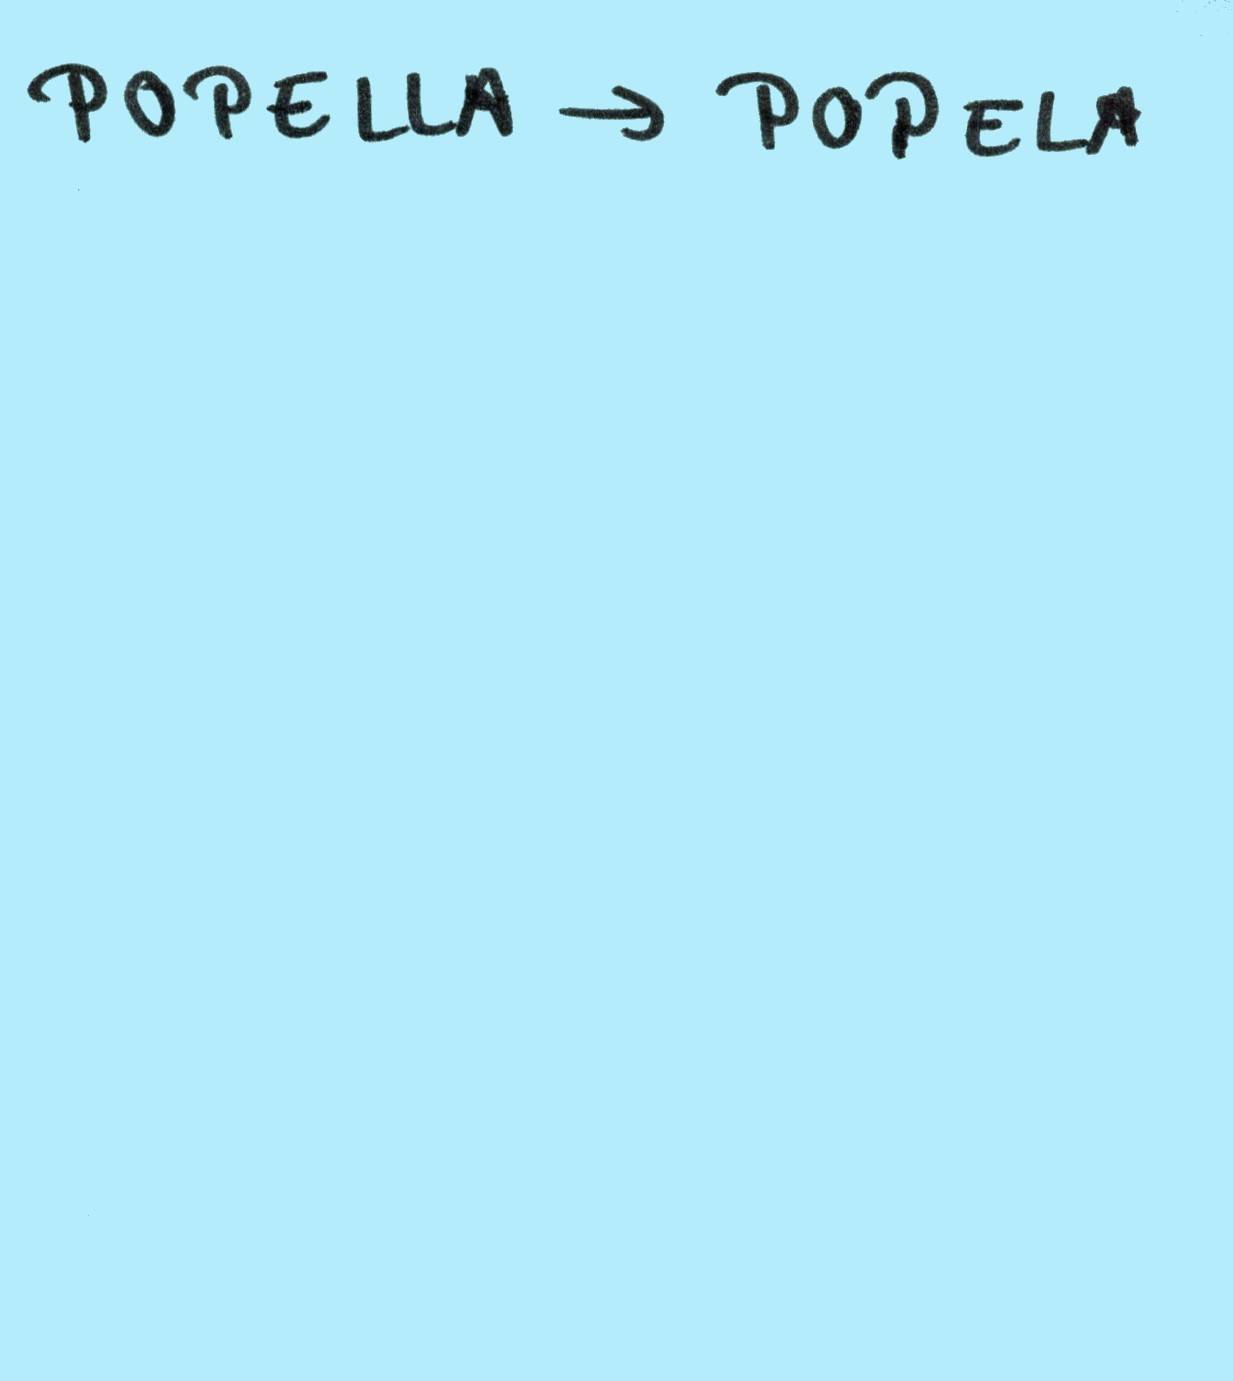 POPELLA → POPELA